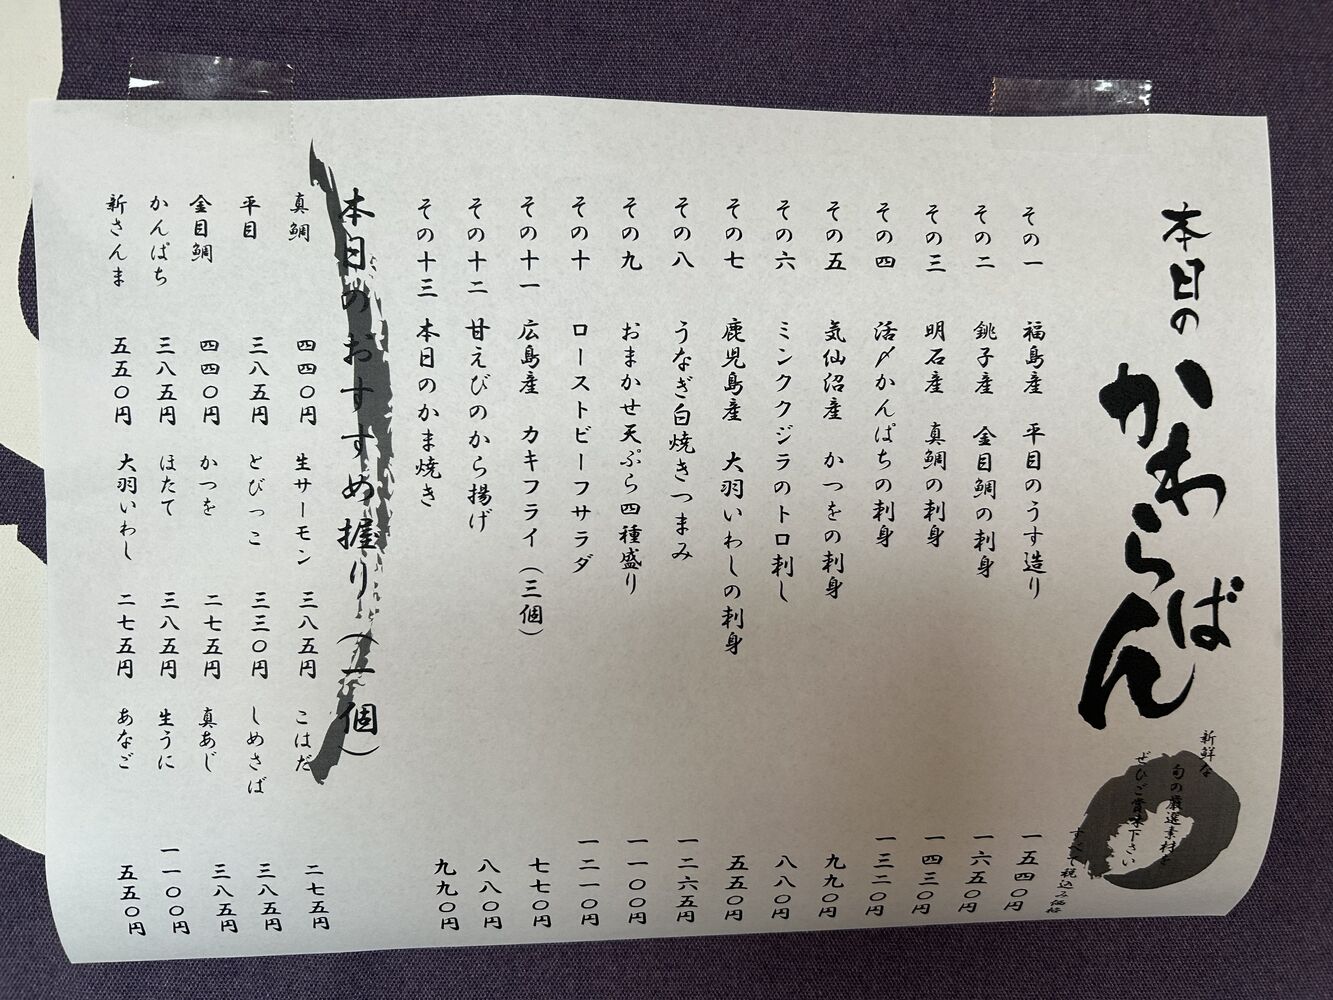 本日の
かわらばん
新鮮な
旬の厳選素材を
ぜひご賞味下さい
すべて税込み価格
その一 福島産 平目のうす造り 一五四〇円
その二 銚子産 金目鯛の刺身 一六五〇円
その三 明石産 真鯛の刺身 一四三〇円
その四 活〆かんぱちの刺身 一三二〇円
その五 気仙沼産 かつをの刺身 九九〇円
その六 ミンククジラのトロ刺し 八八〇円
その七 鹿児島産 大羽いわしの刺身 五五〇円
その八 うなぎ白焼きつまみ 一二六五円
その九 おまかせ天ぷら四種盛り 一一〇〇円
その十 ローストビーフサラダ 一二一〇円
その十一 広島産 カキフライ(三個) 七七〇円
その十二 甘えびのから揚げ 八八〇円
その十三 本日のかま焼き 九九〇円
本日のおすすめ握り(一個)
真鯛 四四〇円 生サーモン 三八五円 こはだ 二七五円
平目 三八五円 とびっこ 三三〇円 しめさば 三八五円
金目鯛 四四〇円 かつを 二七五円 真あじ 三八五円
かんぱち 三八五円 ほたて 三八五円 生うに 一一〇〇円
新さんま 五五〇円 大羽いわし 二七五円 あなご 五五〇円